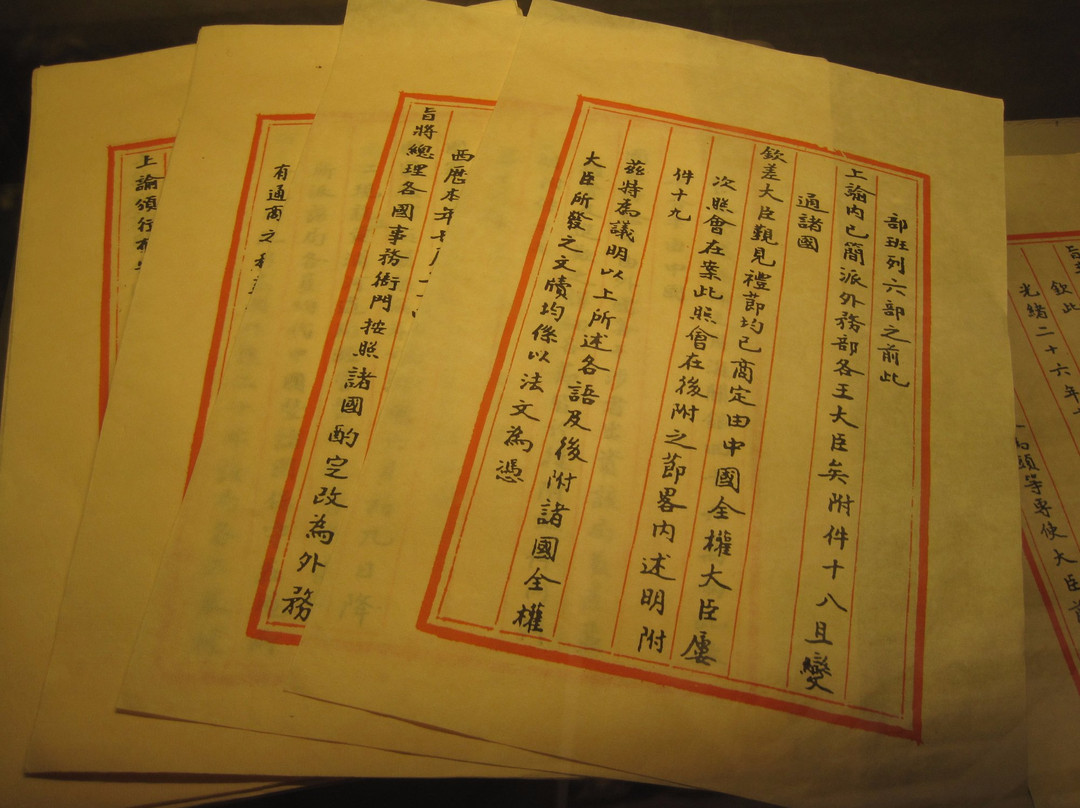 部班列六部之前此
上諭內已簡派外務部各王大臣矣附件十八且變
通諸國
欽差大臣覲見禮節均已商定由中國全權大臣屢
次照會在案此照會在後附之節畧內述明附
件十九
茲特為議明以上所述各語及後附諸國全權
大臣所發之文牘均係以法文為憑
西歷本年七月
旨將總理各國事務衙門按照諸國酌定改為外務
有通商之
上諭頒行布
欽此
光緒二十六年
頭等專使大臣